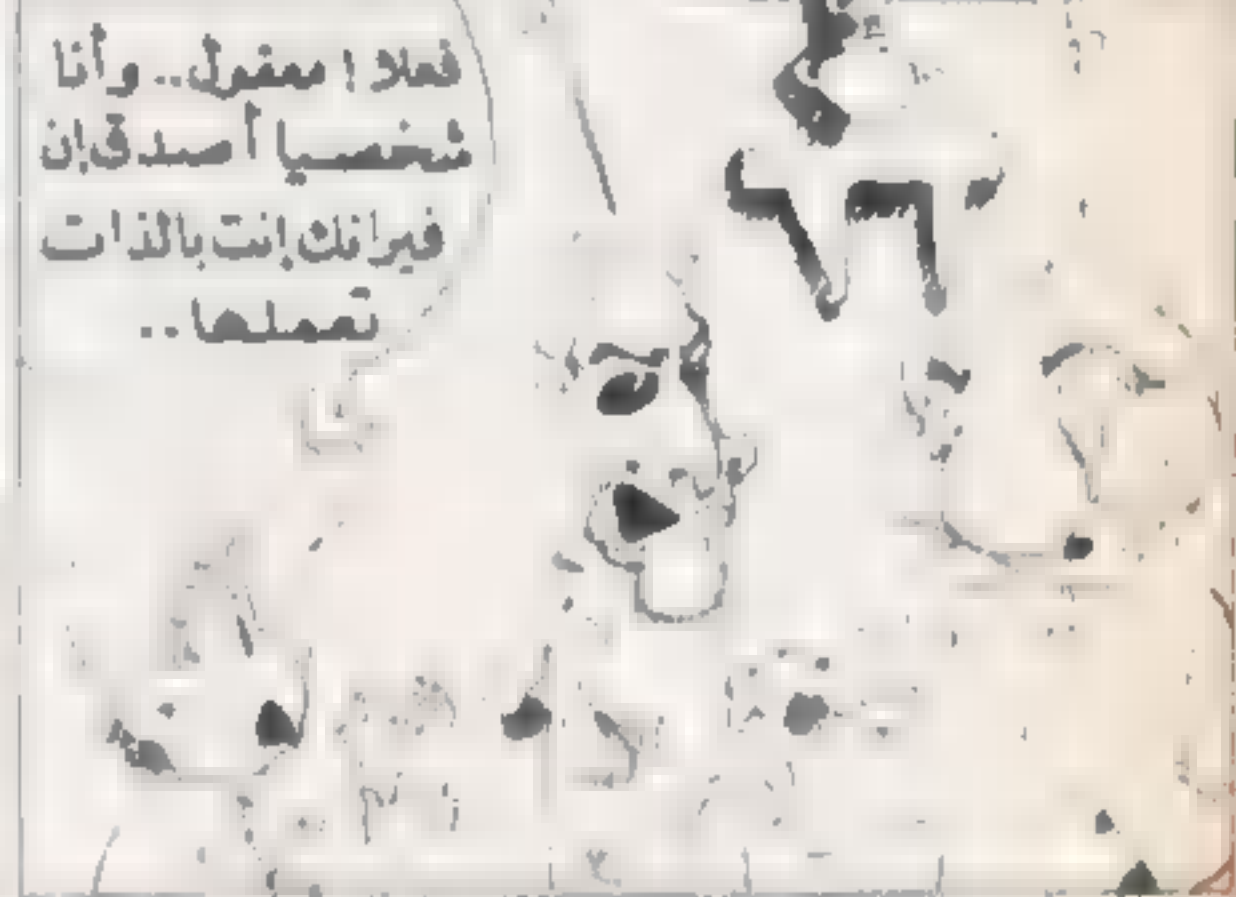 فعلا ! معقول.. وأنا
شخصيا أصدق إن
فيرانك إنت بالذات
تعملها..